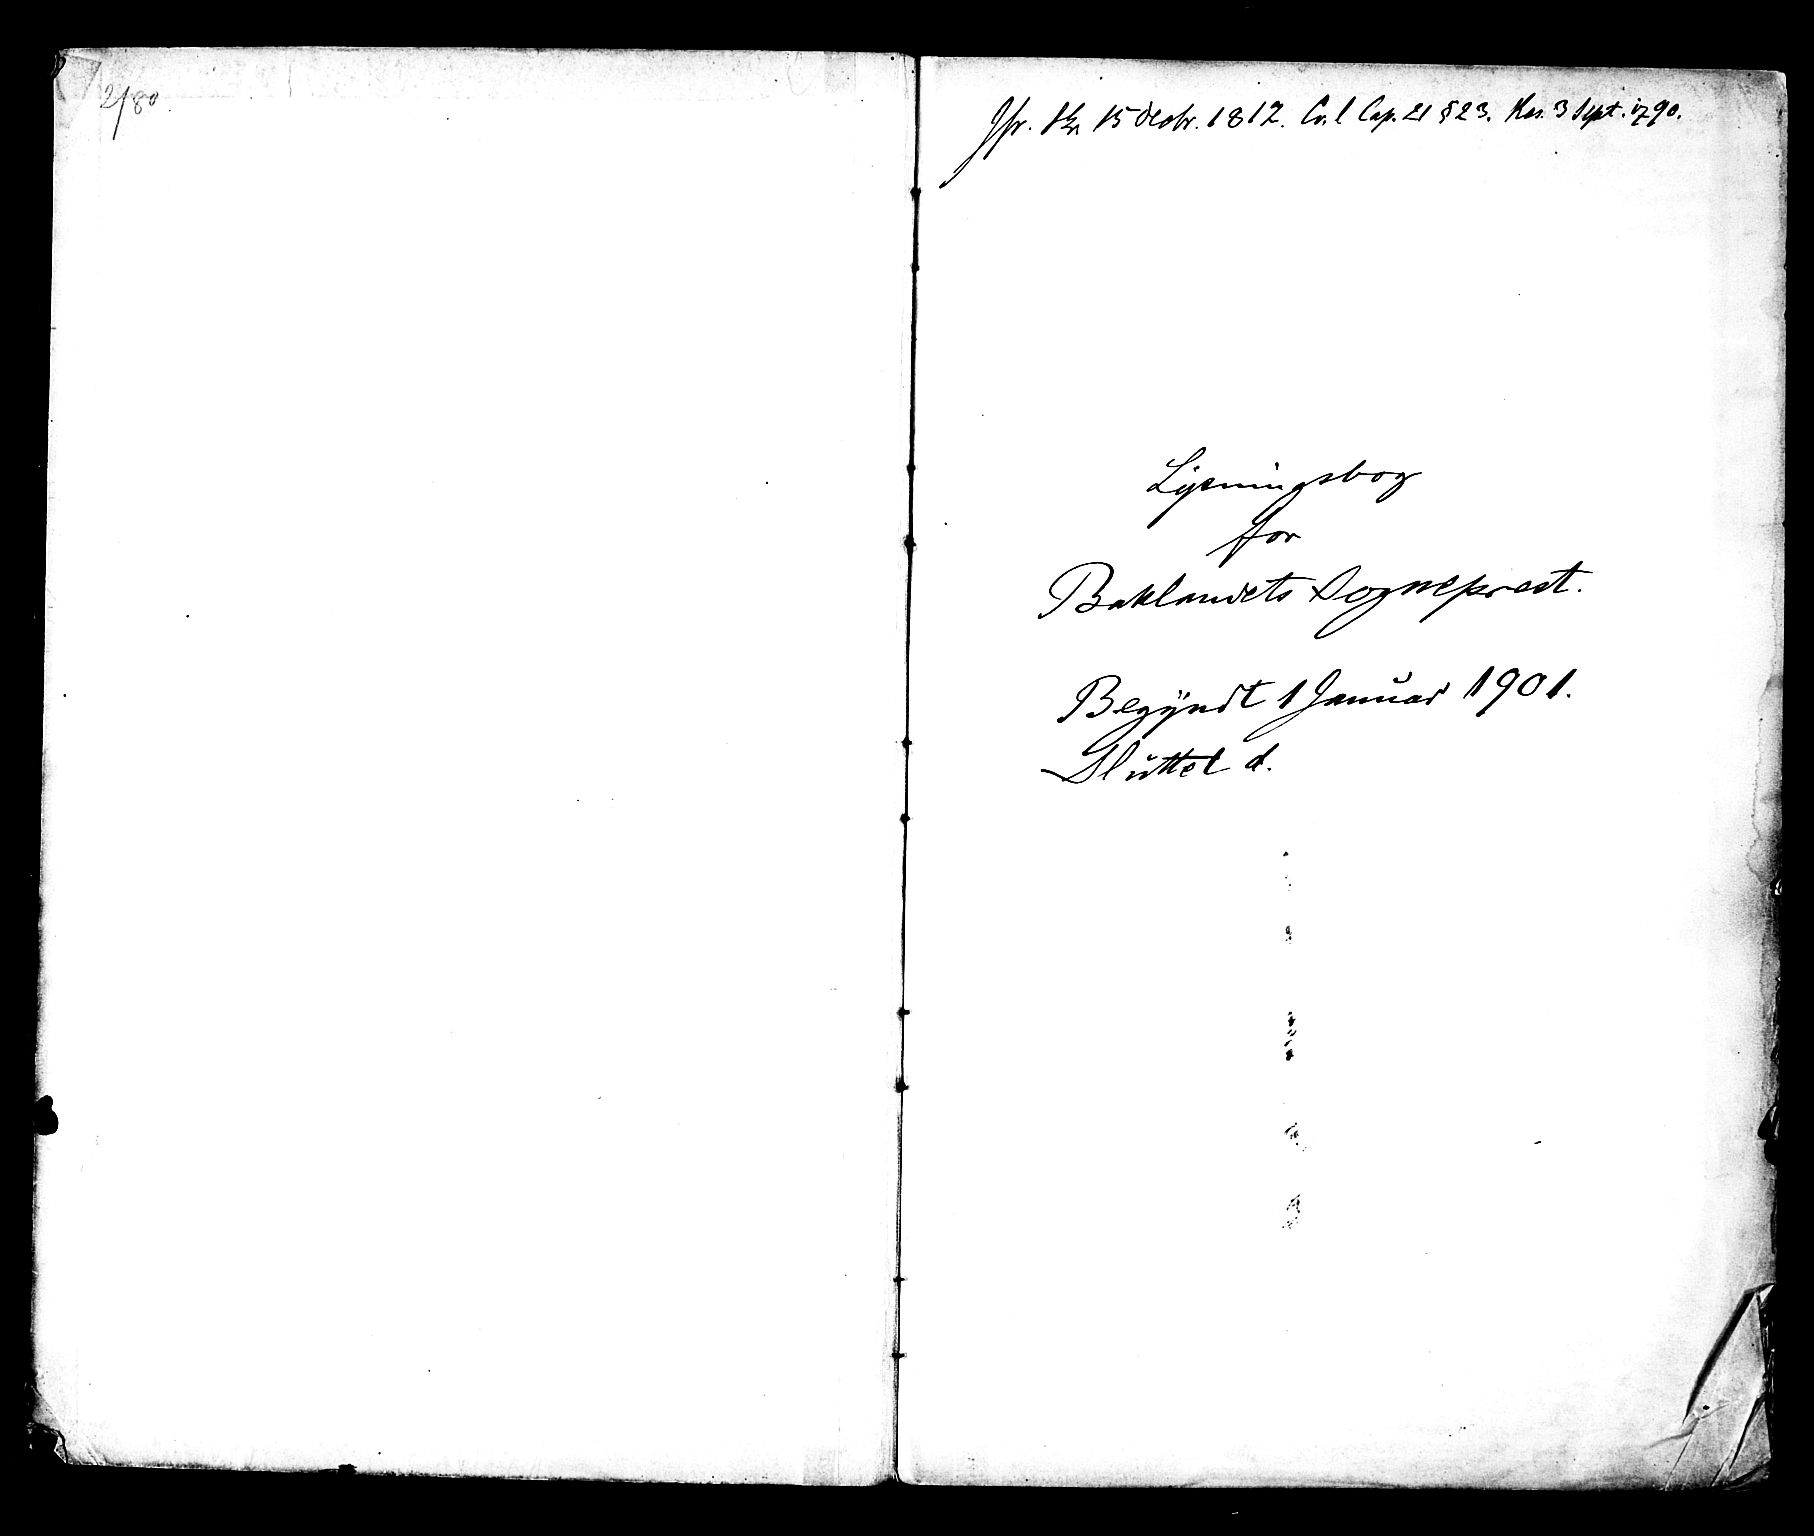 2/80
Jfr. Skr. 15 Decbr. 1812. Cv. l Cap. 21 § 23. Res. 3 Sept. 1790.
Lysningsbog
for
Baklandets Sogneprest.
Begyndt 1 Januar 1901.
Sluttet d.